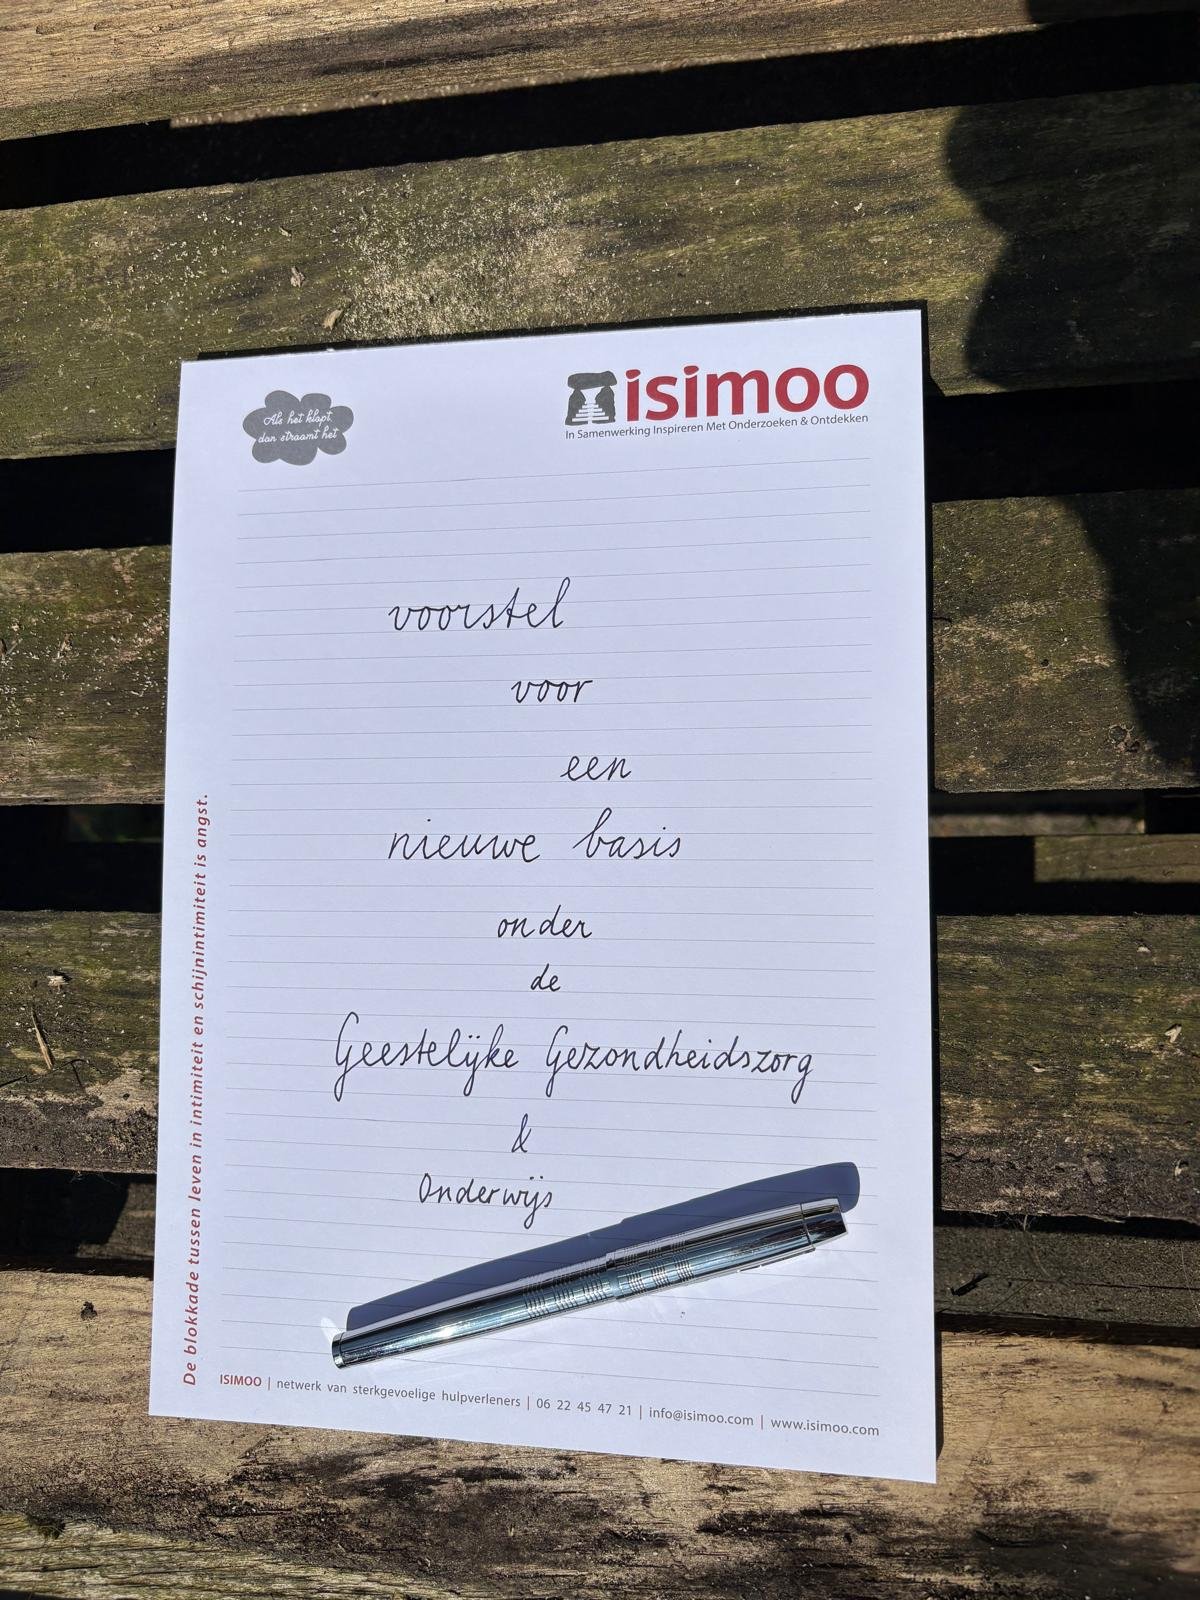 Als het klopt,
dan stroomt het
isimoo
In Samenwerking Inspireren Met Onderzoeken & Ontdekken
voorstel
voor
een
nieuwe basis
onder
de
Geestelijke Gezondheidszorg
&
Onderwijs
De blokkade tussen leven in intimiteit en schijnintimiteit is angst.
ISIMOO | netwerk van sterkgevoelige hulpverleners | 06 22 45 47 21 | info@isimoo.com | www.isimoo.com